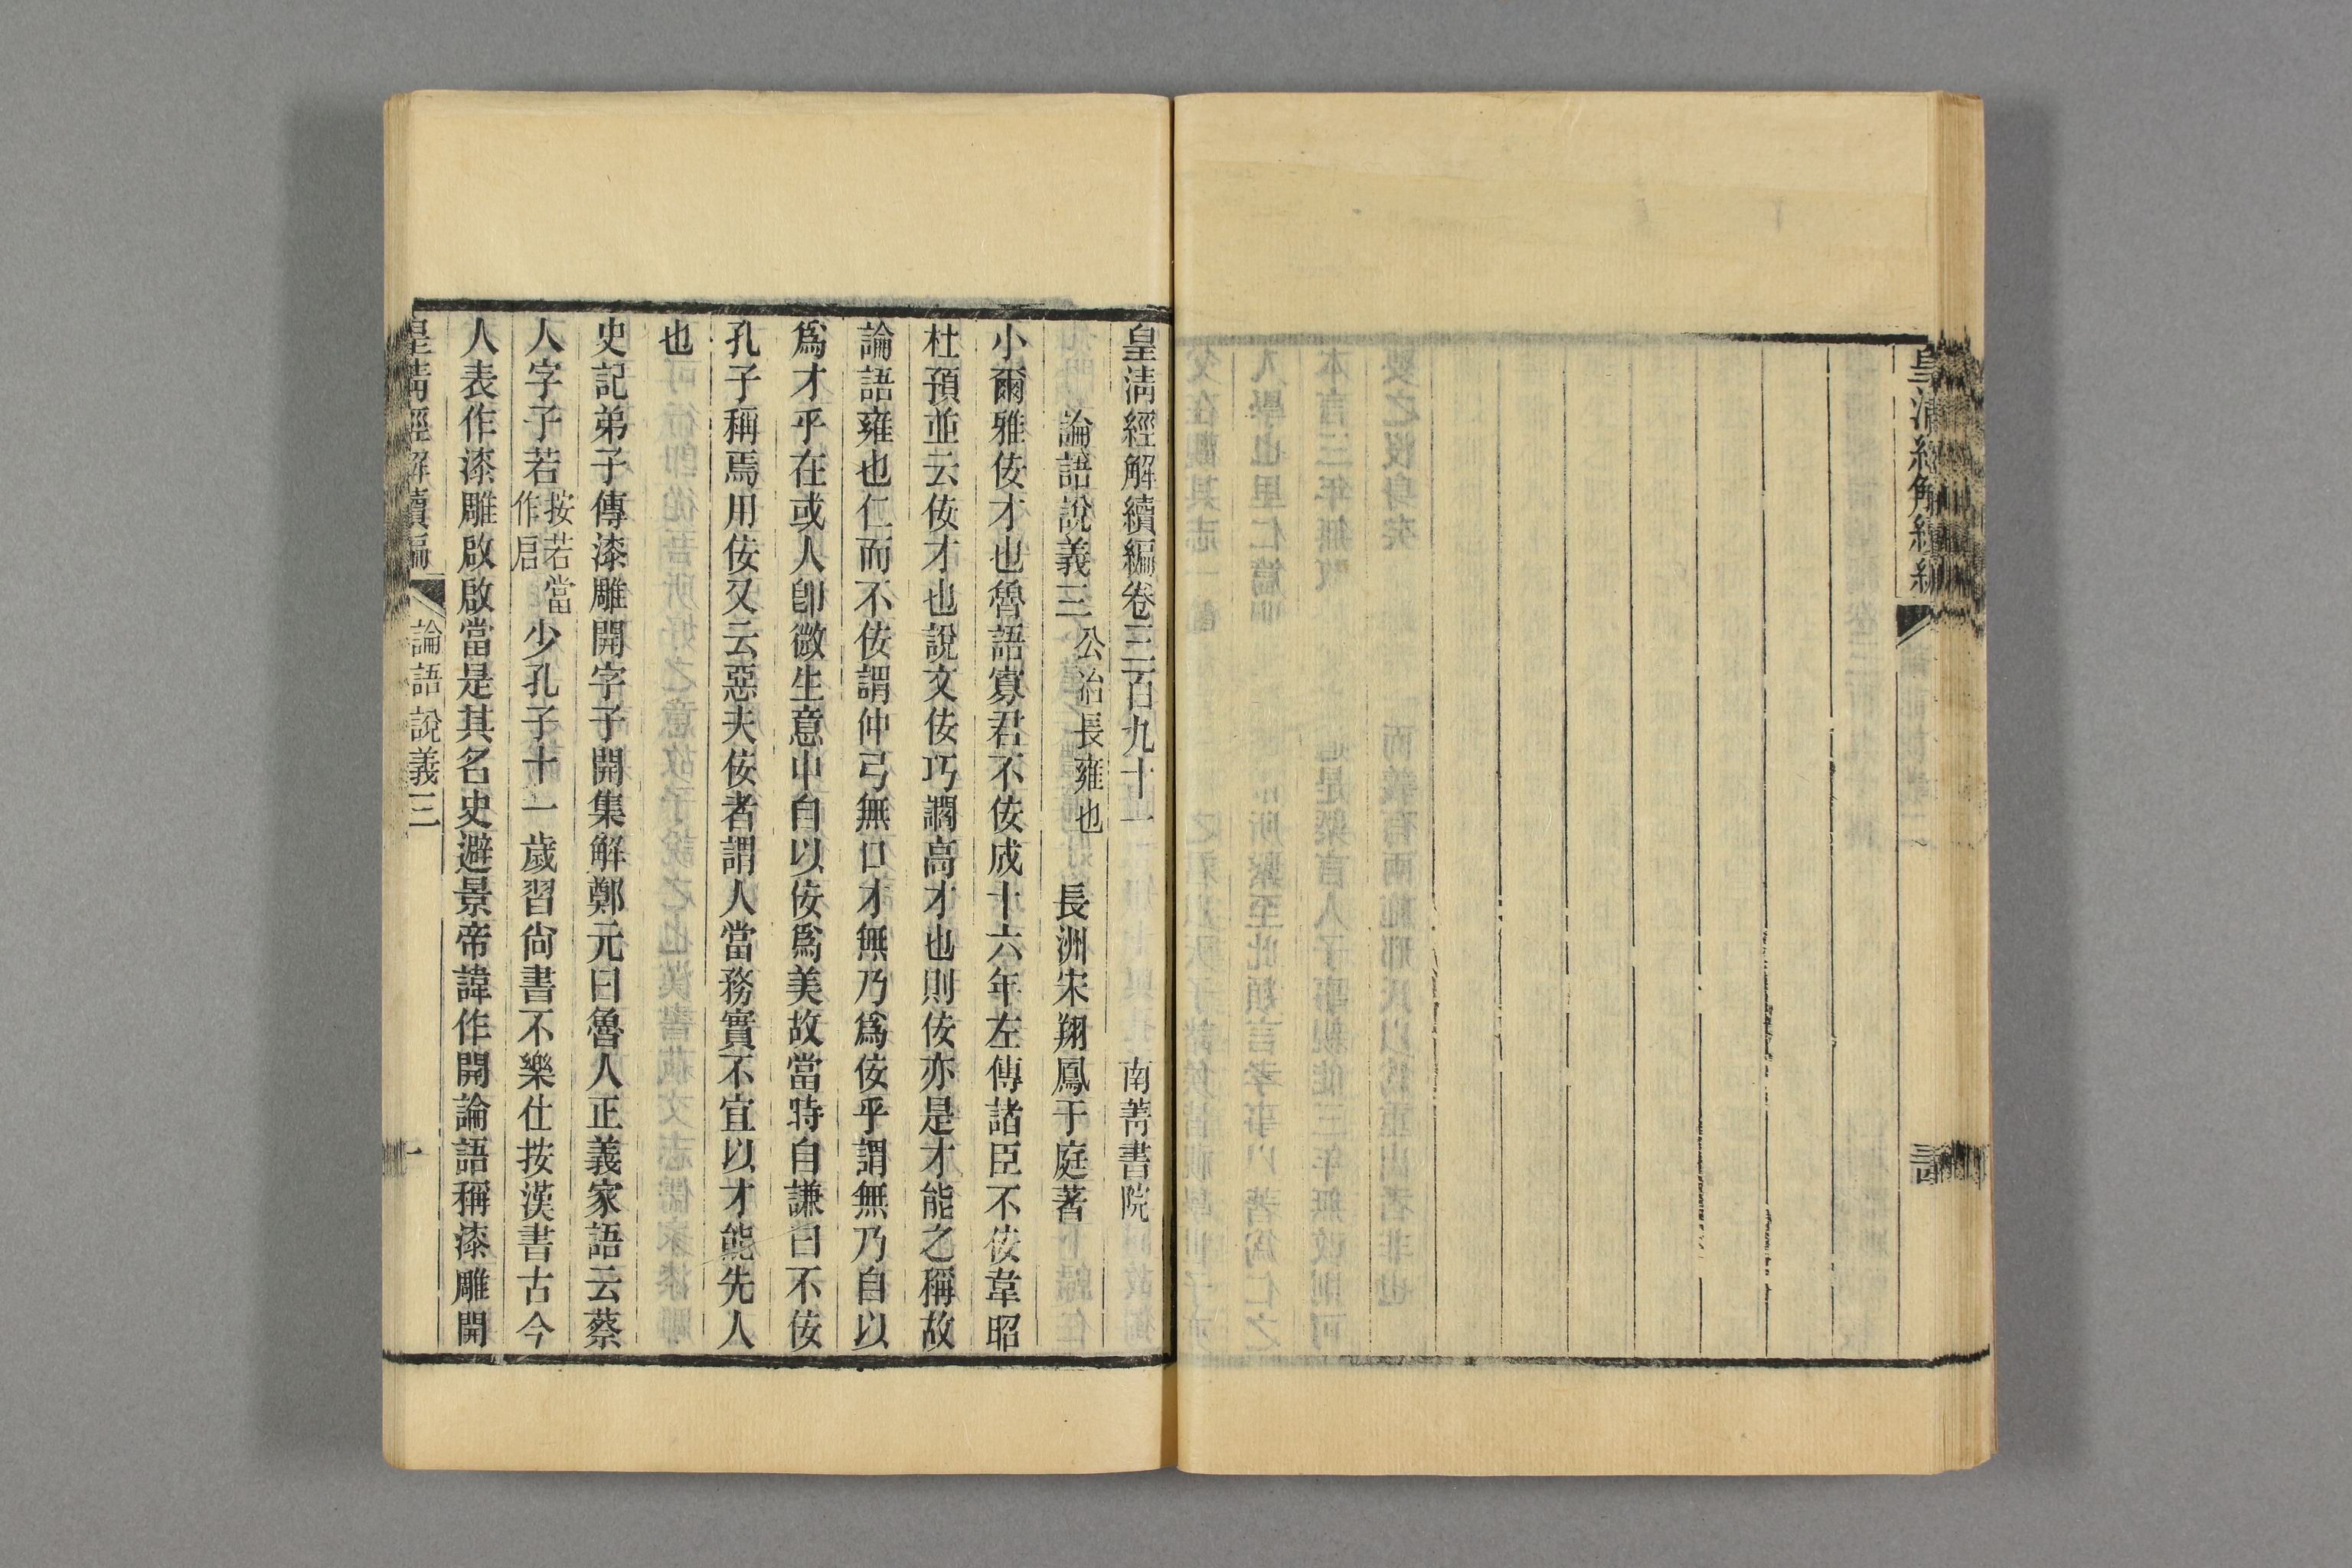 皇清經解續編
皇清經解續編卷三百九十一　南菁書院
論語說義三　公冶長雍也　長洲宋翔鳳于庭著
小爾雅佞才也魯語寡君不佞成十六年左傳諸臣不佞韋昭
杜預並云佞才也說文佞巧讇高才也則佞亦是才能之稱故
論語雍也仁而不佞謂仲弓無口才無乃爲佞乎謂無乃自以
爲才乎在或人卽微生意中自以佞爲美故當時自謙曰不佞
孔子稱焉用佞又云惡夫佞者謂人當務實不宜以才能先人
也
史記弟子傳漆雕開字子開集解鄭元曰魯人正義家語云蔡
人字子若按若當作启少孔子十一歲習尙書不樂仕按漢書古今
人表作漆雕啟啟當是其名史避景帝諱作開論語稱漆雕開
皇清經解續編　論語說義三　一